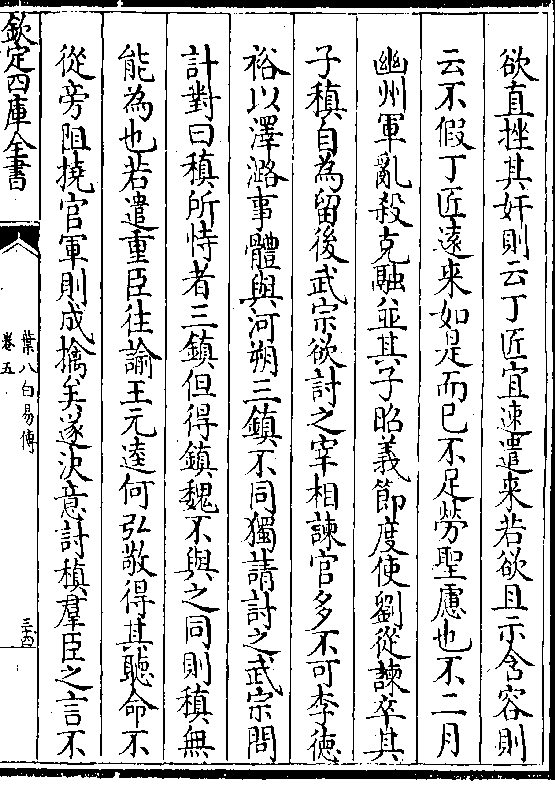 欲直挫其奸則云丁匠宜速遣来若欲且示含容則
云不假丁匠遠来如是而已不足勞聖慮也不二月
幽州軍亂殺克融並其子昭義節度使劉從諫卒其
子稹自為留後武宗欲討之宰相諫官多不可李徳
裕以澤潞事體與河朔三鎮不同獨請討之武宗問
計對曰稹所恃者三鎮但得鎮魏不與之同則稹無
能為也若遣重臣往諭王元逵何弘敬得其聽命不
從旁阻撓官軍則成擒矣遂決意討稹羣臣之言不
欽定四庫全書
葉八白易傳
卷五
三十四